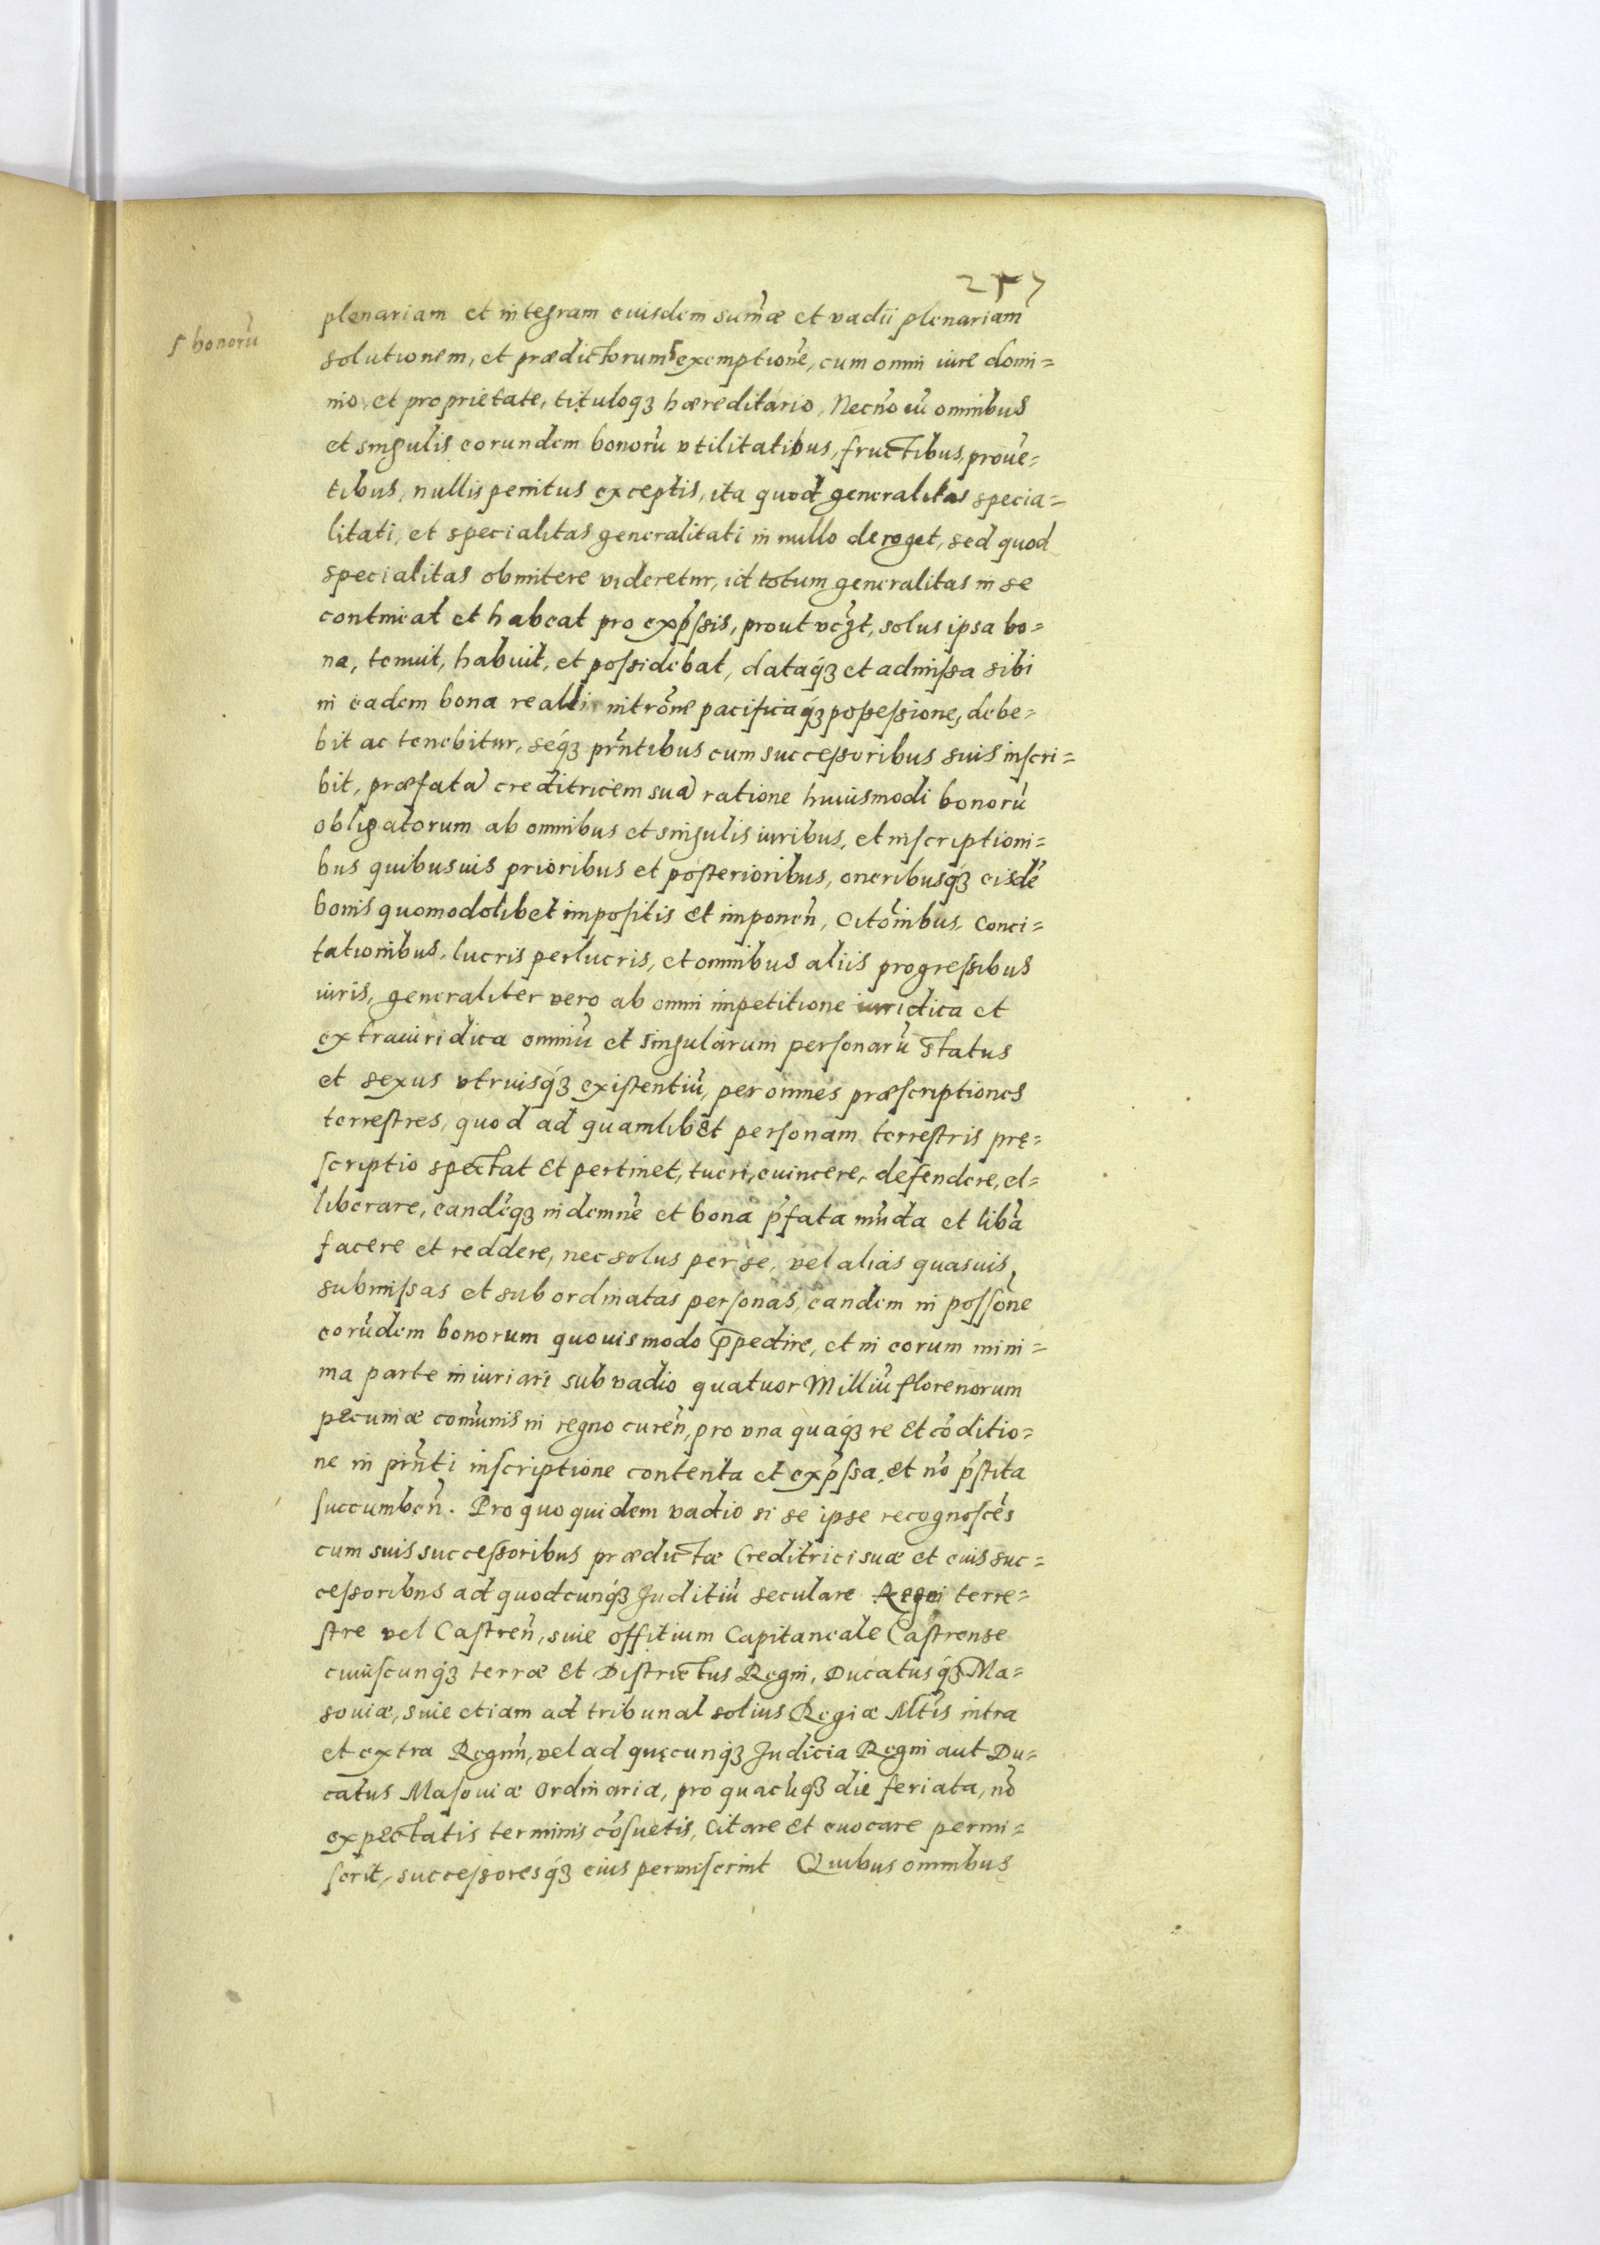 257
plenariam et integram euisdem sum̃æ et vadii plenariam
ſ bonorũ
solutionem, et prædictorum ſ exemptionẽ, cum omni iure domi=
nio et proprietate, tituloq3 hæreditario, Necnõ cũ omnibus
et singulis eorundem bonorũ vtilitatibus, fructibus, prouẽ=
tibus, nullis penitus exceptis, ita quod generalitas specia=
litati, et specialitas generalitati in nullo deroget, sed quod
specialitas obmitere videretur, id totum generalitas in se
contineat et habeat pro exp̃ſsis, prout, solus ipsa bo=
na, tenuit, habuit, et poſsidebat, dataq3 et admiſsa sibi
in eadem bona reali intrõne pacificaq3 poſseſsione, debe=
bit ac tenebitur, seq3 pr̃ntibus cum succeſsoribus suis inſcri=
bit, præfatã creditricem suã ratione huiusmodi bonorũ
obligatorum ab omnibus et singulis iuribus, et inſcriptioni=
bus quibusuis prioribus et poſterioribus, oneribusq3 eisdẽ
bonis quomodolibet impoſitis et imponeñ, Citõnibus, Conci=
tationibus, lucris perlucris, et omnibus aliis progreſsibus
iuris, generaliter vero ab omni impetitione iuridica et
extraiuridica omniũ et singularum perſonarũ status
et sexus vtriusq3 exiſtentiũ, per omnes præſcriptiones
terreſtres, quod ad quamlibet perſonam terreſtris prę=
ſcriptio spectat et pertinet, tueri, euincere, defendere, et=
liberare, eandẽq3 indemnẽ et bona p̃fata mũda et libã
facere et reddere, nec solus per se, vel alias quasuis
submiſsas et subordinatas perſonas, eandem in poſſõne
eorũdem bonorum quouismodo p̄pedire, et in eorum mini=
ma parte iniuriari sub vadio quatuor Milliũ florenorum
pecuniæ com̃unis in regno cureñ, pro vna quaq3 re et cõditio=
ne in pr̃nti inſcriptione contenta et exp̃ſsa, et nõ p̃ſtita
ſuccumbeñ. Pro quo quidem vadio si se ipse recognoſcẽs
cum suis succeſsoribus prædictæ Creditrici suæ et euis suc=
ceſsoribus ad quodcunq3 Juditiũ seculare Regni terre=
ſtre vel Caſtreñ, siue offitium Capitaneale Caſtrense
cuiuſcunq3 terræ et Diſtrictus Regni, Ducatusq3 Ma=
souiæ, siue etiam ad tribunal solius Regiæ Mt̃is intra
et extra Regnũ, vel ad quęcunq3 Judicia Regni aut Du=
catus Maſouiæ ordinaria, pro quacũq3 die feriata, nõ
expectatis terminis cõſuetis, citare et euocare permi=
ſerit, succeſsoresq3 eius permiſerint Quibus omnibus